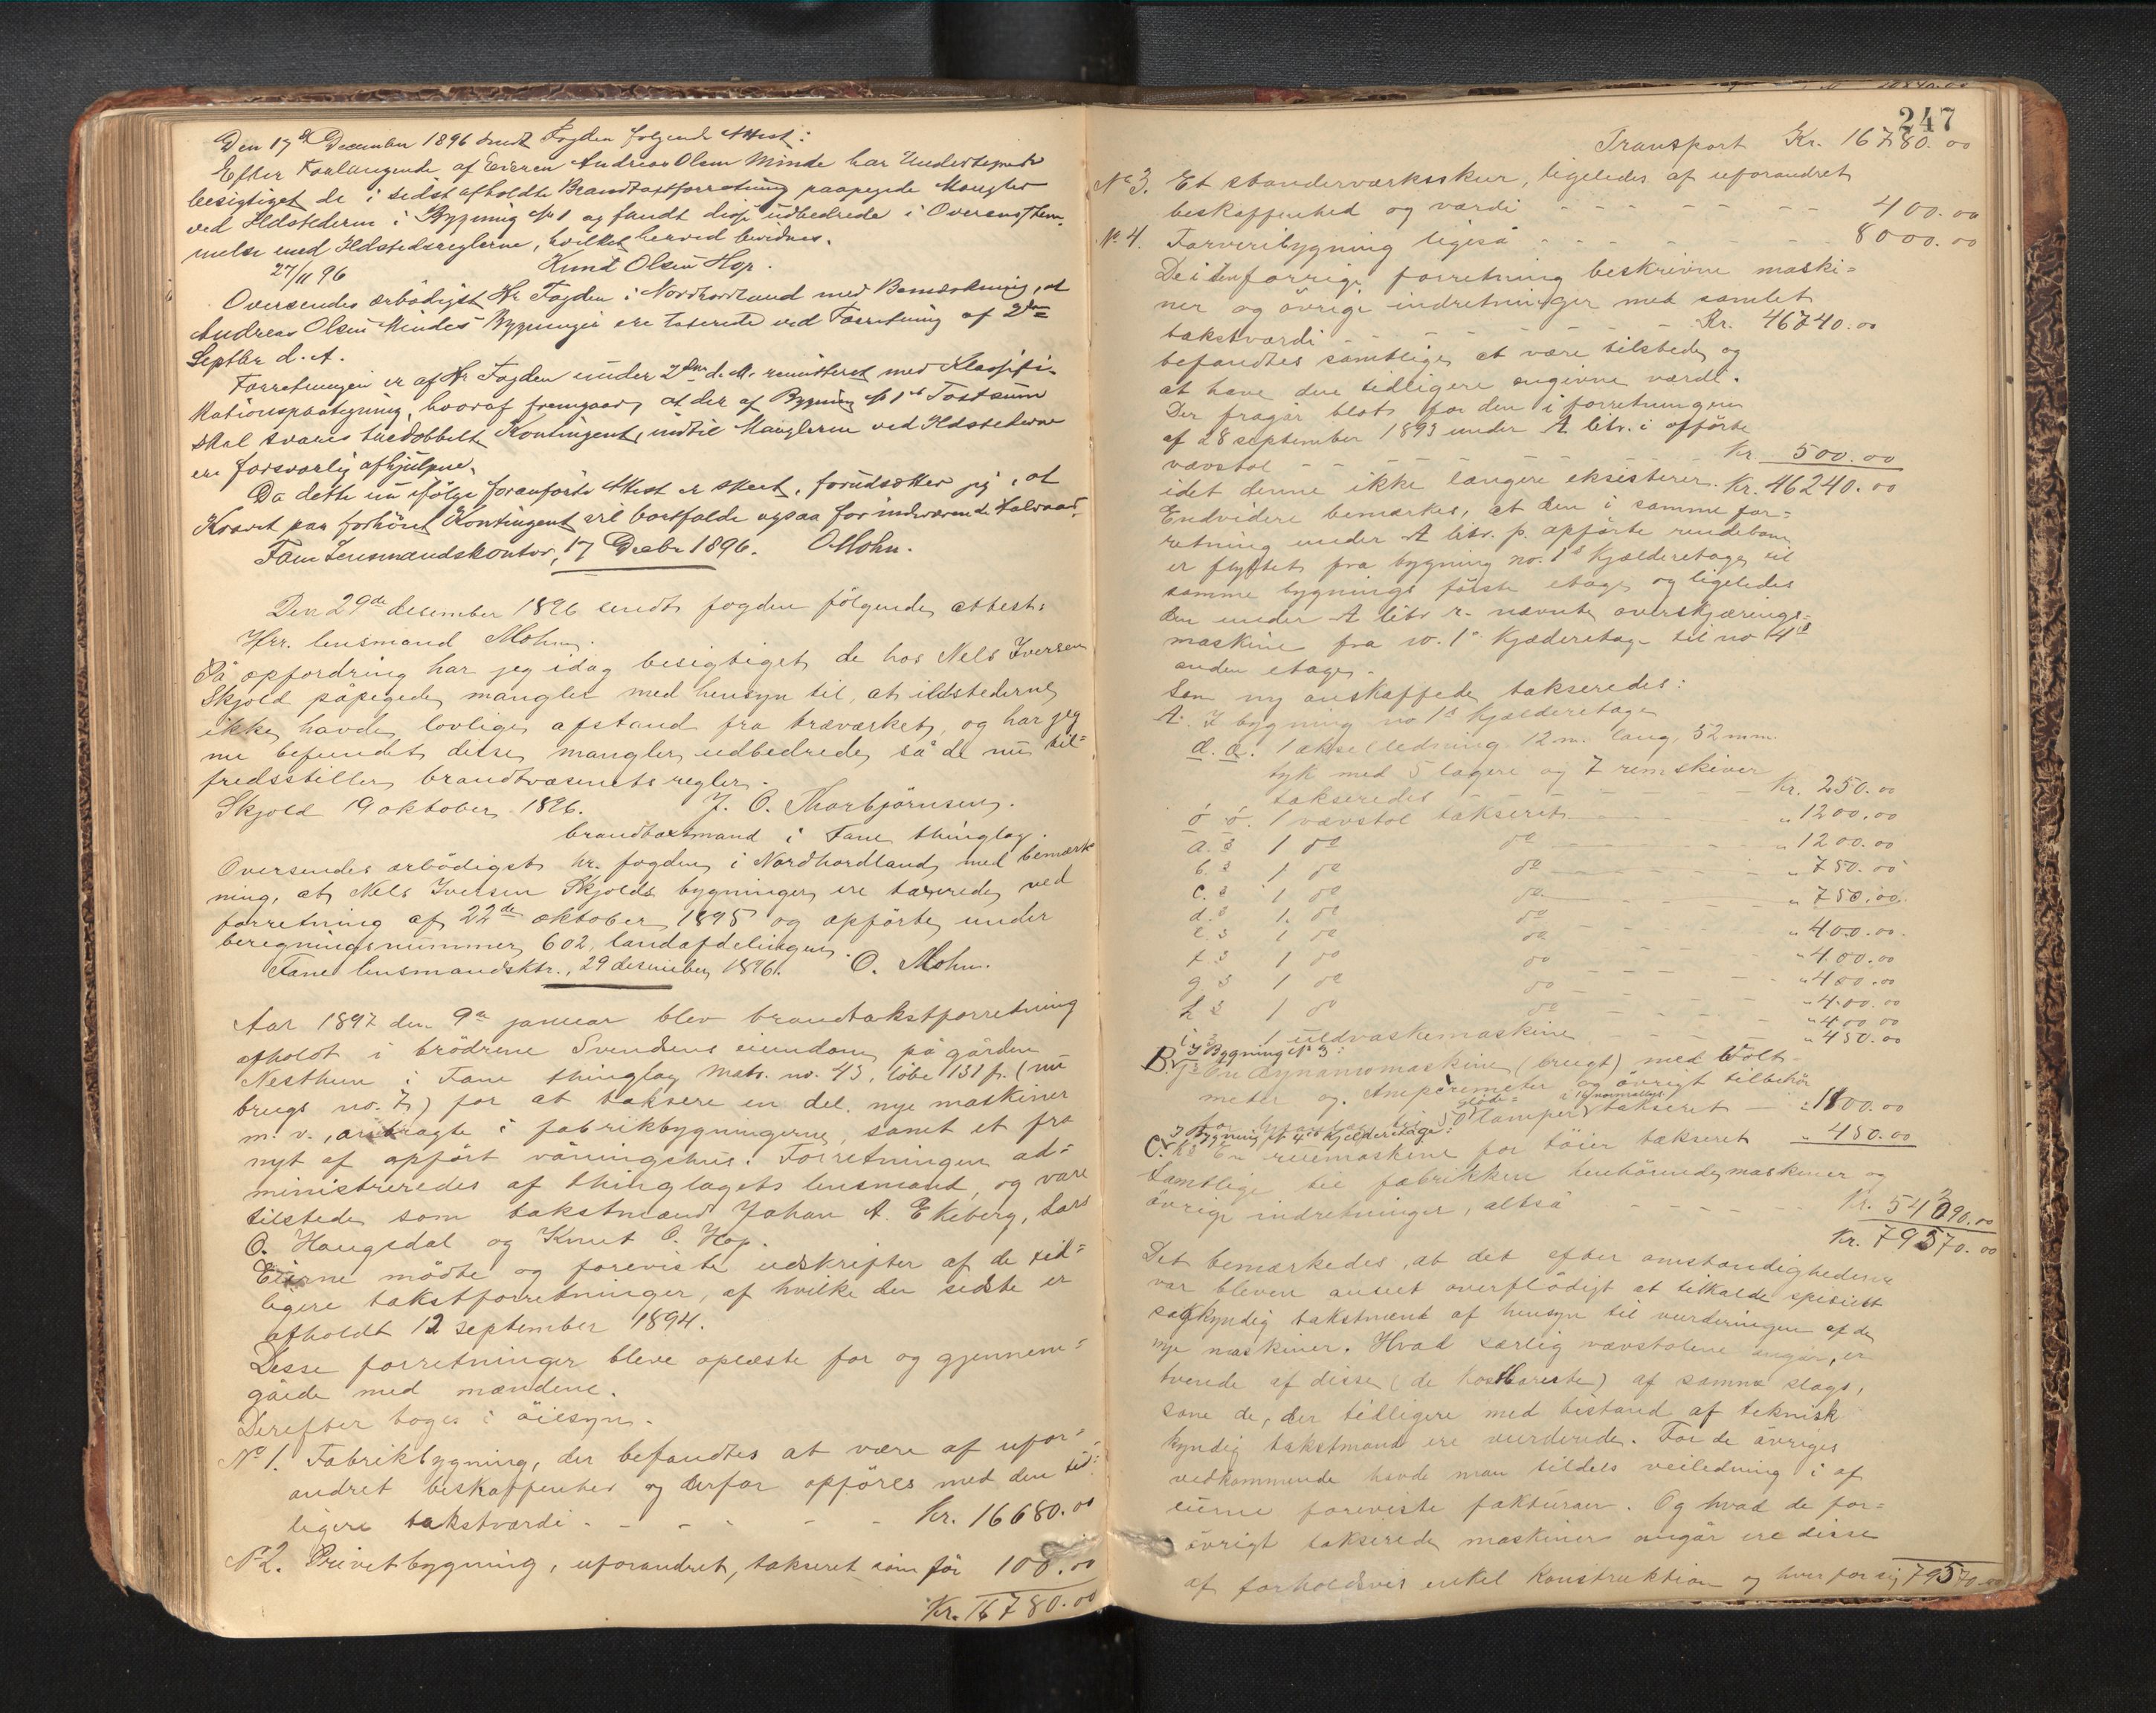 Den 17de December 1896 sendt Fogden følgende Attest:
Efter Forlangende af Eieren Andreas Olsen Minde har Undertegnede
besigtiget de i sidst afholdte Brandtaxtforretning paapegede Mangler
ved Ildstederne i Bygning № 1 og fandt disse udbedrede i Overensstem-
melse med Ildstedsreglerne, hvilket herved bevidnes.
27/11 96 Knut Olsen Hop.
Oversendes ærbödigst Hr. Fogden i Nordhordland med Bemærkning, at
Andreas Olsen Mindes Bygninger ere taxerede ved Forretning af 2den
Septbr d. A.
Forretningen er af Hr. Fogden under 2den d. M. remitteret med Klassifi-
kationspaategning, hvoraf fremgaar, at der af Bygning № 1
skal svares tredobbelt Kontingent, indtil Manglerne ved Ildstederne
ere forsvarlig afhjulpne.
Da dette nu ifölge foranførte Attest er skeet, forudsætter jeg, at
Kravet paa forhöiet Kontingent vil bortfalde ogsaa for indeværende Halvaar.
Fane Lensmandskontor, 17 Decbr 1896. O Mohn.
Den 29de desember 1896 sendt fogden fölgende attest:
Hrr. lensmand Mohn.
På opfordring har jeg idag besigtiget de hos Nels Iversen
Skjold påpegede mangler med hensyn til, at ildstederne
ikke havde lovlige afstand fra træværket, og har jeg
nu befundet disse mangler udbedrede så de nu til=
fredsstiller brandtvæsenets regler.
Skjold 19 oktober 1896. J. O. Thorbjörnsen.
brandtaxtmand i Fane thinglag.
Oversendes ærbödigst hr. fogden i Nordhordland med bemærk
ning, at Nels Iversen Skjolds bygninger ere taxerede ved
forretning af 22de oktober 1895 og opförte under
beregningsnummer 602, landafdelingen.
Fane lensmandsktr., 29 desember 1896. O. Mohn.
Aar 1897 den 9de januar blev brandtakstforretning
afholdt i brödrene Svendsens eiendom på gården
Nesthun i Fane thinglag Matr. no. 43, löbe 131 f. (nu
brugs no. 7) for at taksere en del nye maskiner
m. v., anbragte i fabrikbygningerne, samt et fra
nyt af opfört våningshus. Forretningen ad=
ministreredes af thinglagets lensmand, og vare
tilstede som takstmænd Johan A. Ekeberg, Lars
O. Haugsdal og Knut O. Hop.
Eierne mödte og foreviste udskrifter af de tid=
ligere takstforretninger, af hvilke den sidste er
afholdt 12 september 1894.
Disse forretninger bleve oplæste for og gjennem=
gåede med mændene.
Derefter toges i öiesyn.
No 1. Fabrikbygning, der befandtes at være af ufor=
andret beskaffenhed og derfor opföres med den tid=
ligere takstværdi - - - - - Kr. 16680.00
No 2. Privetbygning, uforandret, takseret som för 100.00
Kr. 16780.00
247
Transport Kr. 16780.00
No 3. Et standerværksskur, ligeledes af uforandret
beskaffenhed og værdi - - - - - - - 400.00
No 4. Farveribygning ligeså - - - - - - 8000.00
De i den forrige forretning beskrevne maski=
ner og övrige indretninger med samlet
takstværdi - - - - - - Kr. 46740.00
befandtes samtlige at være tilstede og
at have den tidligere angivne værdi.
Der fragår blot for den i forretningen
af 28 september 1893 under A litr. i opförte
vævstol - - - - - - Kr 500.00
idet denne ikke længere eksisterer. Kr. 46240.00
Endvidere bemærkes, at den i samme for=
retning under A litr. p. opförte rundebom
er flyttet fra bygning no. 1s kjælderetage til
samme bygnings förste etage og ligeledes
den under A litr r. nævnte overskjærings=
maskine fra no. 1s kjælderetage til no 4s
anden etage.
Som ny anskaffede takseredes:
A. I bygning no 1s kjælderetage
d. æ. 1 akseledning 12 m. lang, 52 mm.
tyk med 5 lagere og 7 remskiver
takseredes - - - - - - Kr. 250.00
ö. ö. 1 vævstol takseret - - - „ 1200.00
a. 3 1 do do - - - „ 1200.00
b. 3 1 do do - - - „ 750.00
c. 3 1 do do - - - „ 750.00
d. 3 1 do do - - - „ 400.00
e. 3 1 do do - - - „ 400.00
f. 3 1 do do - - - „ 400.00
g. 3 1 do do - - - „ 400.00
h 3 1 do do - - - „ 400.00
i. 3 1 uldvaskemaskine - - - „ 450.00
I Bygning № 3:
B. j3 En dynamomaskine (brugt) med Volt-
meter og Ampéremeter og övrigt tilbehör
glöde= à 16 normallys
50 lamper takseret - „ 1100.00
I Bygning № 4s kjelderetage:
C. k3 En ruemaskine for töier takseret „ 450.00
Samtlige til fabrikken henhörende maskiner og
övrige indretninger, altså - - - - - Kr. 54390.00
Kr. 79570.00
Det bemærkedes, at det efter omstændighederne
var bleven anseet overflödigt at tilkalde specielt
sagkyndig takstmænd af hensyn til vurderingen af de
nye maskiner. Hvad særlig vævstolene angår, er
tvende af disse (de kostbareste) af samme slags,
som de, der tidligere med bistand af teknisk
kyndig takstmand ere vurderede. For de övriges
vedkommende havde man tildels veiledning i af
eierne foreviste fakturaer. Og hvad de for=
övrigt takserede maskiner angår ere disse
af forholdsvis enkel konstruktion og hver for sig 79570.00